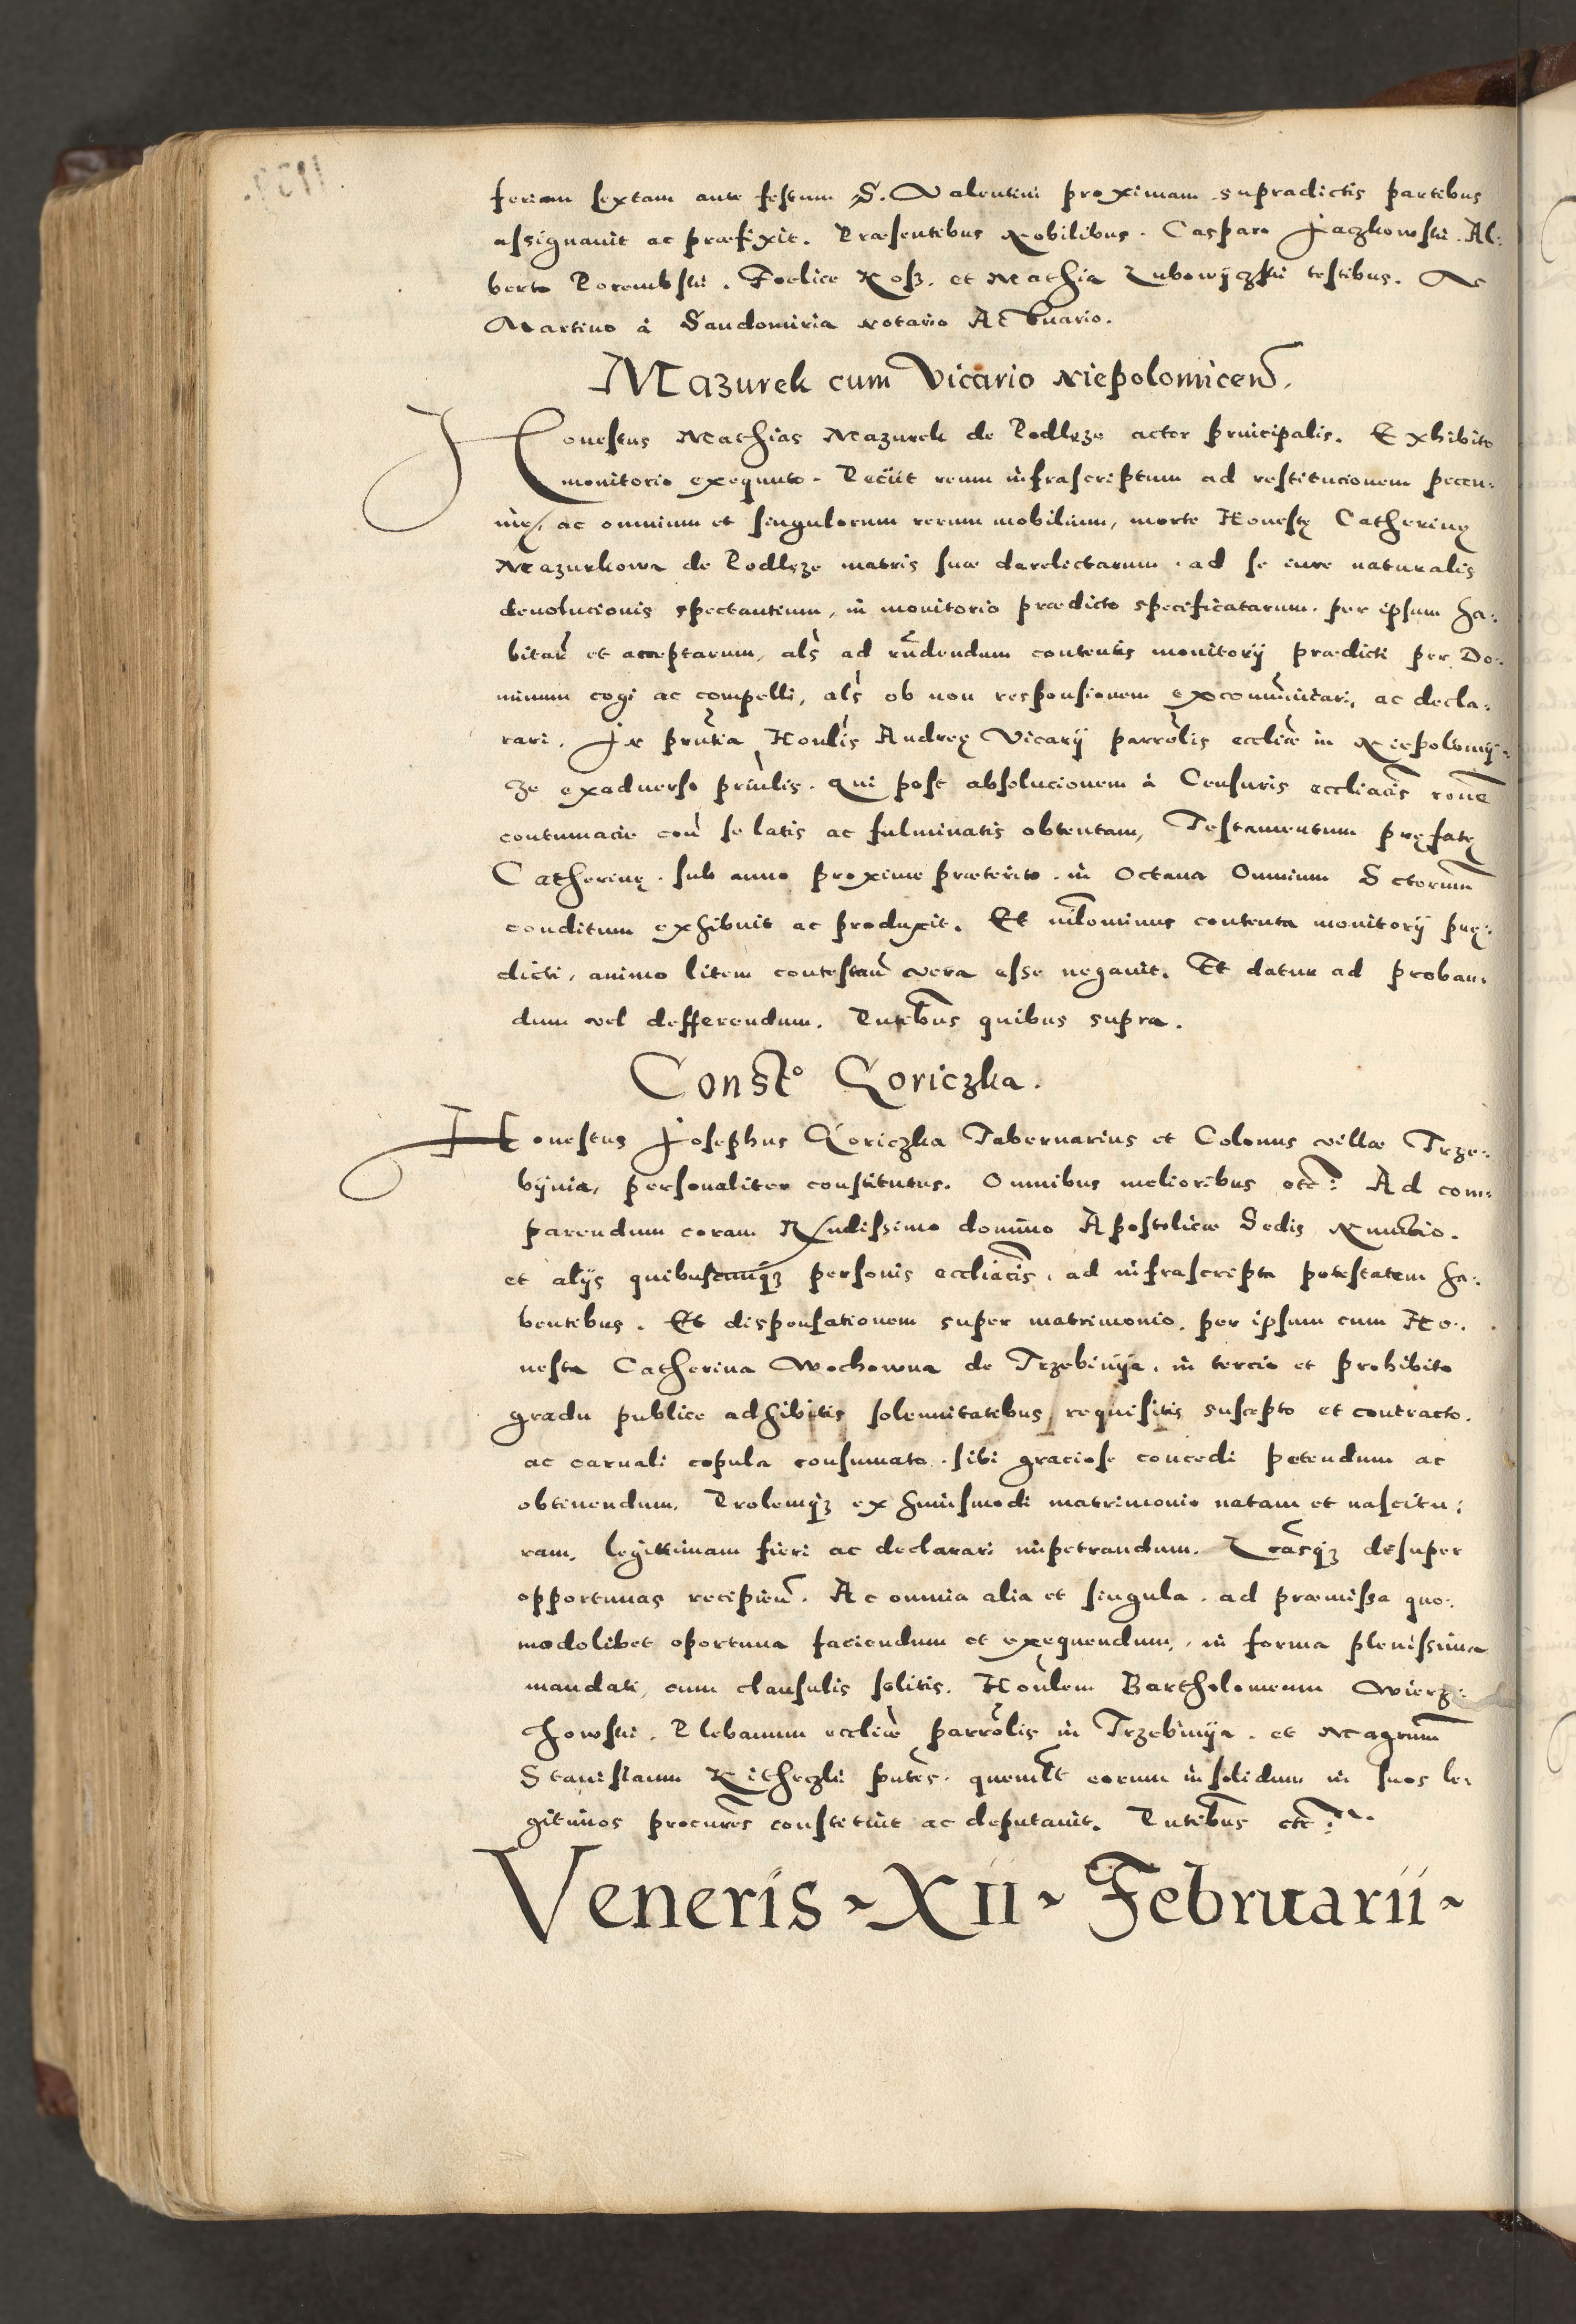 feriam sextam ante festum S. Valentini proximam supradictis partibus
assignauit ac præfixit. Præsentibus Nobilibus. Casparo Jaczkowski. Al:
berto Porembski. Foelice Rosz. et Mathia Lubowyczski testibus. Ac
Martino à Sandomiria Notario Actuario.
Mazurek cum Vicario Niepolomicen̄.
Honestus Mathias Mazurek de Podlęze actor principalis. Exhibito
monitorio exequuto. Peciit reum infrascriptum ad restitucionem pecu:
nię, ac omnium et singulorum rerum mobilium, morte Honestę Catherinę
Mazurkowa de Podlęze matris suæ derelictarum. ad se iure naturalis
deuolucionis spectantium, in monitorio prædicto specificatarum. per ipsum ha:
bitar̄ et acceptarum, als̄ ad rn̄dendum contentis monitorij prædicti per Do:
minum cogi ac compelli, als̄ ob non responsionem excom̄unicari, ac decla:
rari. In pn̄tia Honlis̄ Andreę Vicarij parrolis̄ eccliǣ in Niepolomy:
ze exaduerso prin̄lis. Qui post absolucionem à Censuris eccliacis̄ rone̅
contumacie con̄ se latis ac fulminatis obtentam, Testamentum pręfatę
Catherinę. sub anno proxime præterito. in Octaua Omnium Sctorum̅
conditum exhibuit ac produxit. Et nil̄ominus contenta monitorij prę:
dicti, animo litem contestan̄ vera esse negauit. Et datur ad proban:
dum vel defferendum. Pntibus̄ quibus supra.
Const.º Goriczka.
Honestus Josephus Goriczka Tabernarius et Colonus villæ Trze:
bÿnia, personaliter constitutus. Omnibus melioribus etc̄: Ad com:
parendum coram Rn̄dissimo domino Apostolicæ Sedis Nunctio.
et alijs quibuscunqʒ personis eccliacis̄, ad infrascripta potestatem ha:
bentibus. Et dispensationem super matrimonio, per ipsum cum Ho:
nesta Catherina Wochowna de Trzebinija, in tercio et prohibito
gradu publice adhibitis solennitatibus requisitis suscepto et contracto,
ac carnali copula consumato. sibi graciose concedi petendum ac
obtinendum, Prolemqʒ ex huiusmodi matrimonio natam et nascitu:
ram, legittimam fieri ac declarari impetrandum. Lr̄asqʒ desuper
opportunas recipien̄. Ac omnia alia et singula. ad præmissa quo:
modolibet oportuna faciendum et exequendum, in forma plenissima
mandati, cum clausulis solitis. Honl̄em Bartholomeum Wierz:
chowski. Plebanum eccliǣ parrolis̄ in Trzebinija. et Magrum̅
Stanislaum pn̄tes. queml̄t eorum insolidum in suos le:
gitimos procur̄es constituit ac deputauit. Pntibus̄ etc̄:
Veneris ~ XII ~ Februarii ~